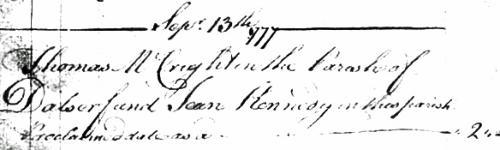 Sepr. 13th 1777
Thomas McCright in the Parish of
Dalserf and Jean Kennedy in this parish
Proclaimed
2